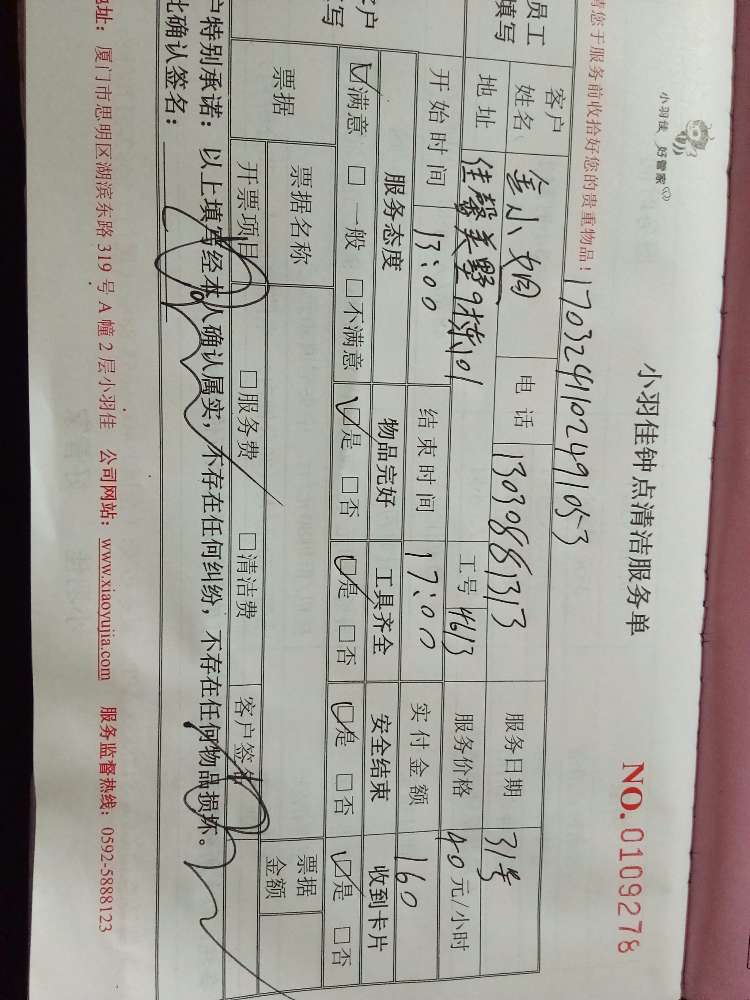 小羽佳 好管家
小羽佳钟点清洁服务单
NO. 0109278
请您于服务前收拾好您的贵重物品！ 1703241102491053
员工
填写
客户
姓名
电话 13030881313
服务日期 31号
地址 佳馨美墅9栋101
工号 4613
服务价格 40元/小时
开始时间 13:00
结束时间 17:00
实付金额 160
客户
填写
服务态度 物品完好 工具齐全 安全结束 收到卡片
☑满意 □一般 □不满意 ☑是 □否 ☑是 □否 ☑是 □否 ☑是 □否
票据 票据名称
票据
金额
开票项目 □服务费 □清洁费 客户签名
户特别承诺：以上填写经本人确认属实，不存在任何纠纷，不存在任何物品损坏。
此确认签名：
地址：厦门市思明区湖滨东路 319 号 A 幢 2 层小羽佳 公司网站：www.xiaoyujia.com 服务监督热线：0592-5888123